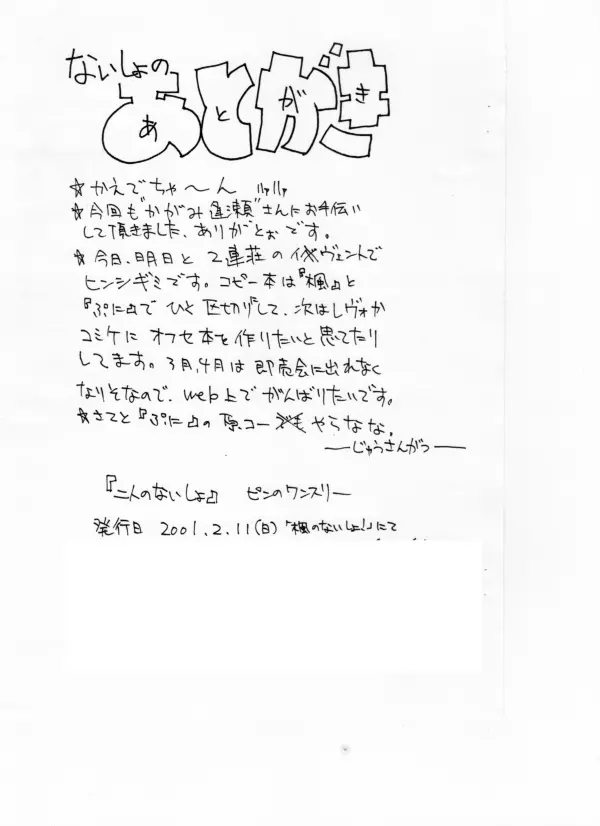 ないしょの
あとがき
☆かえでちゃ〜ん
☆今回も"かがみ逢瀬"さんにお手伝い
して頂きました、ありがとぉです。
☆今日、明日と 2連荘のイヴェントで
ヒンシギミです。コピー本は『楓』と
『ぷに』でひと区切りして、次はレヴォか
コミケに オフセ本を作りたいと思てたり
してます。3月、4月は即売会に出れなく
なりそなので、web上でがんばりたいです。
☆さてと『ぷに』の原コー やらなな。
──じゅうさんがつ──
『二人のないしょ』 ピンのワンスリー
発行日 2001.2.11(日)「楓のないしょ!」にて